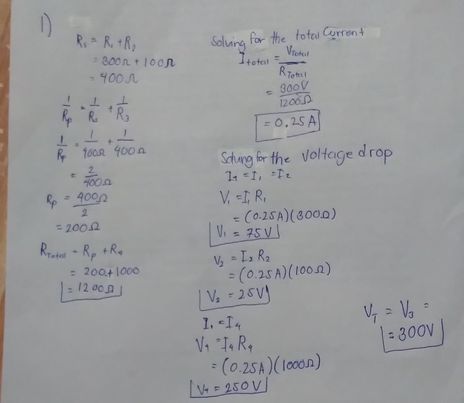 1)
Rs = R1 + R2
= 300Ω + 100Ω
= 400Ω
1/Rp = 1/Rs + 1/R3
1/Rp = 1/400Ω + 1/400Ω
= 2/400Ω
Rp = 400Ω/2
= 200Ω
RTotal = Rp + R4
= 200 + 1000
= 1200Ω
Solving for the total Current
Itotal = VTotal/RTotal
= 300V/1200Ω
= 0.25A
Solving for the voltage drop
= I1 = I2
V1 = I1 R1
= (0.25A)(300Ω)
V1 = 75V
V2 = I2 R2
= (0.25A)(100Ω)
V2 = 25V
= I4
V4 = I4 R4
= (0.25A)(1000Ω)
V4 = 250V
VT = V3 =
= 300V